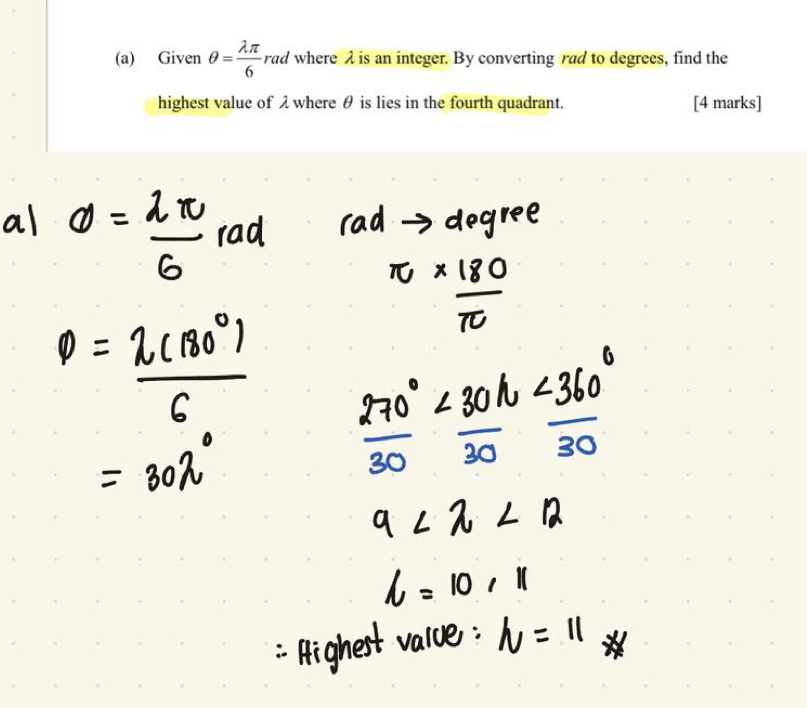 (a) Given θ = λπ/6 rad where λ is an integer. By converting rad to degrees, find the
highest value of λ where θ is lies in the fourth quadrant. [4 marks]
a) θ = λπ/6 rad
rad → degree
π × 180/π
θ = λ(180°)/6
= 30λ°
270°/30 < 30λ/30 < 360°/30
9 < λ < 12
λ = 10, 11
∴ Highest value : λ = 11 #